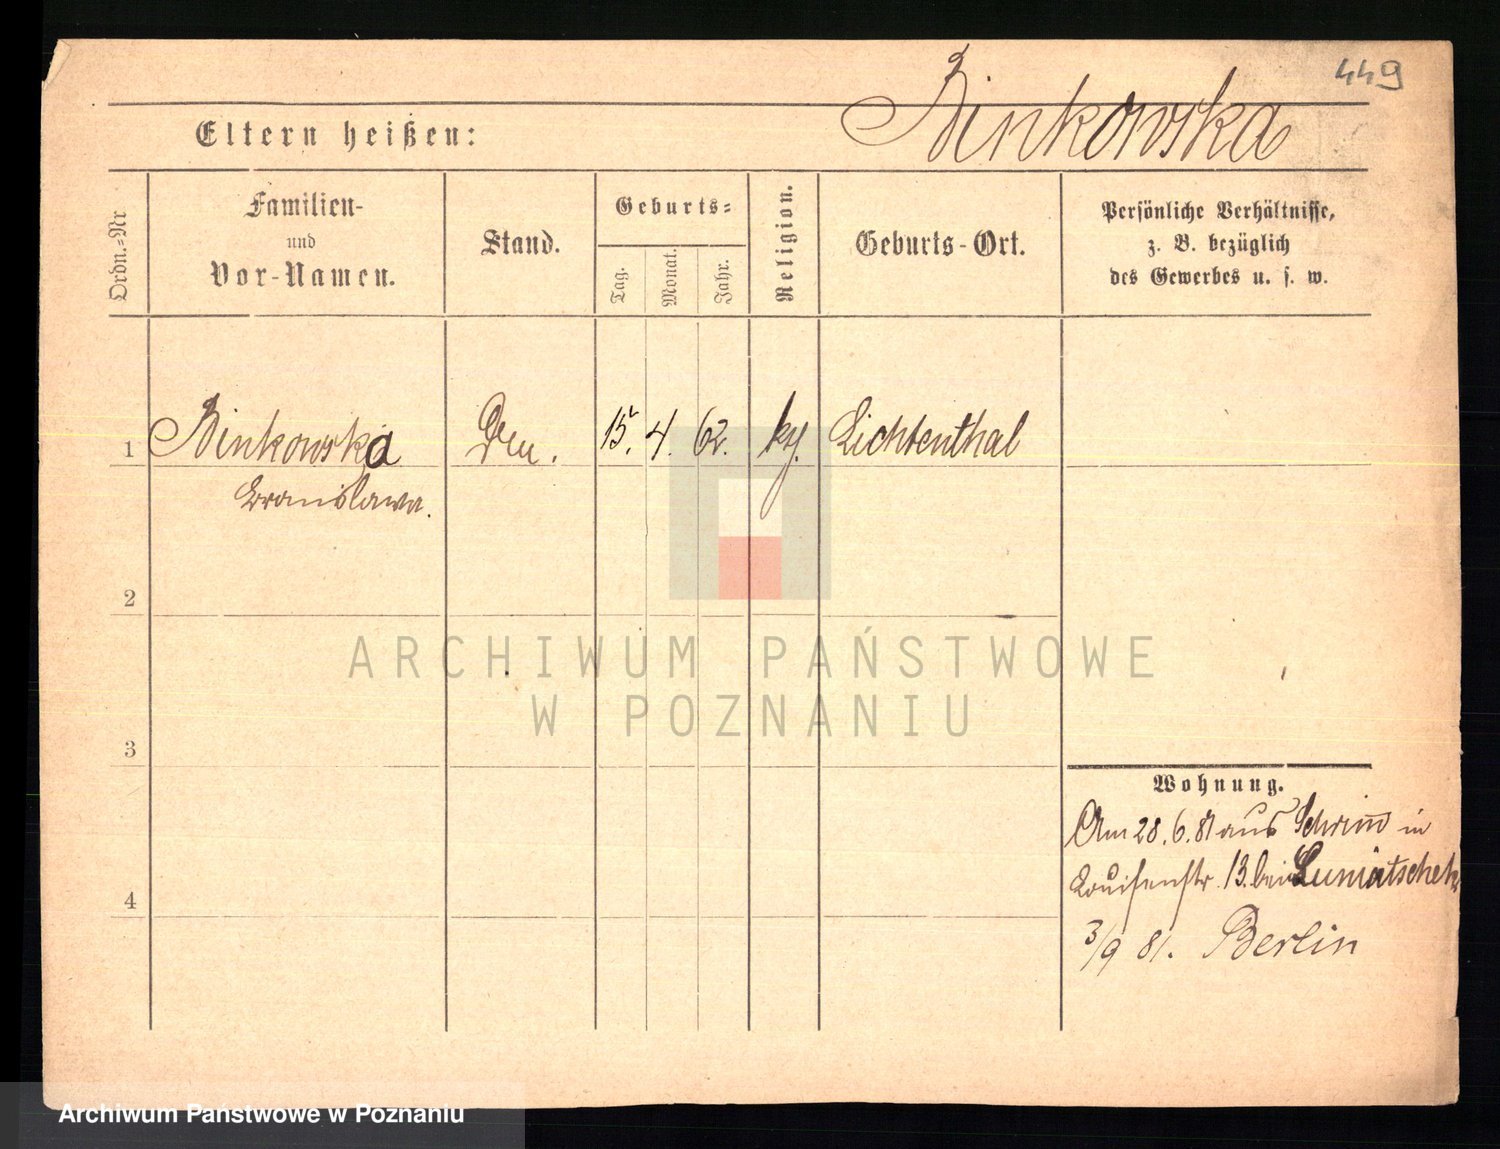 449
Binkowska
Eltern heißen:
Ordn.=Nr
Familien-
und
Vor-Namen.
Stand.
Geburts=
Tag.
Monat.
Jahr.
Religion.
Geburts-Ort.
Persönliche Verhältnisse,
z. B. bezüglich
des Gewerbes u. s. w.
1 Binkowska 15. 4. 62. Lichtenthal
Bronislawa.
2
3
4
ARCHIWUM PAŃSTWOWE
W POZNANIU
Wohnung.
Am 28.6.81 aus Schrimm in
Louisenstr. 13. bei
3/9 81. Berlin
Archiwum Państwowe w Poznaniu